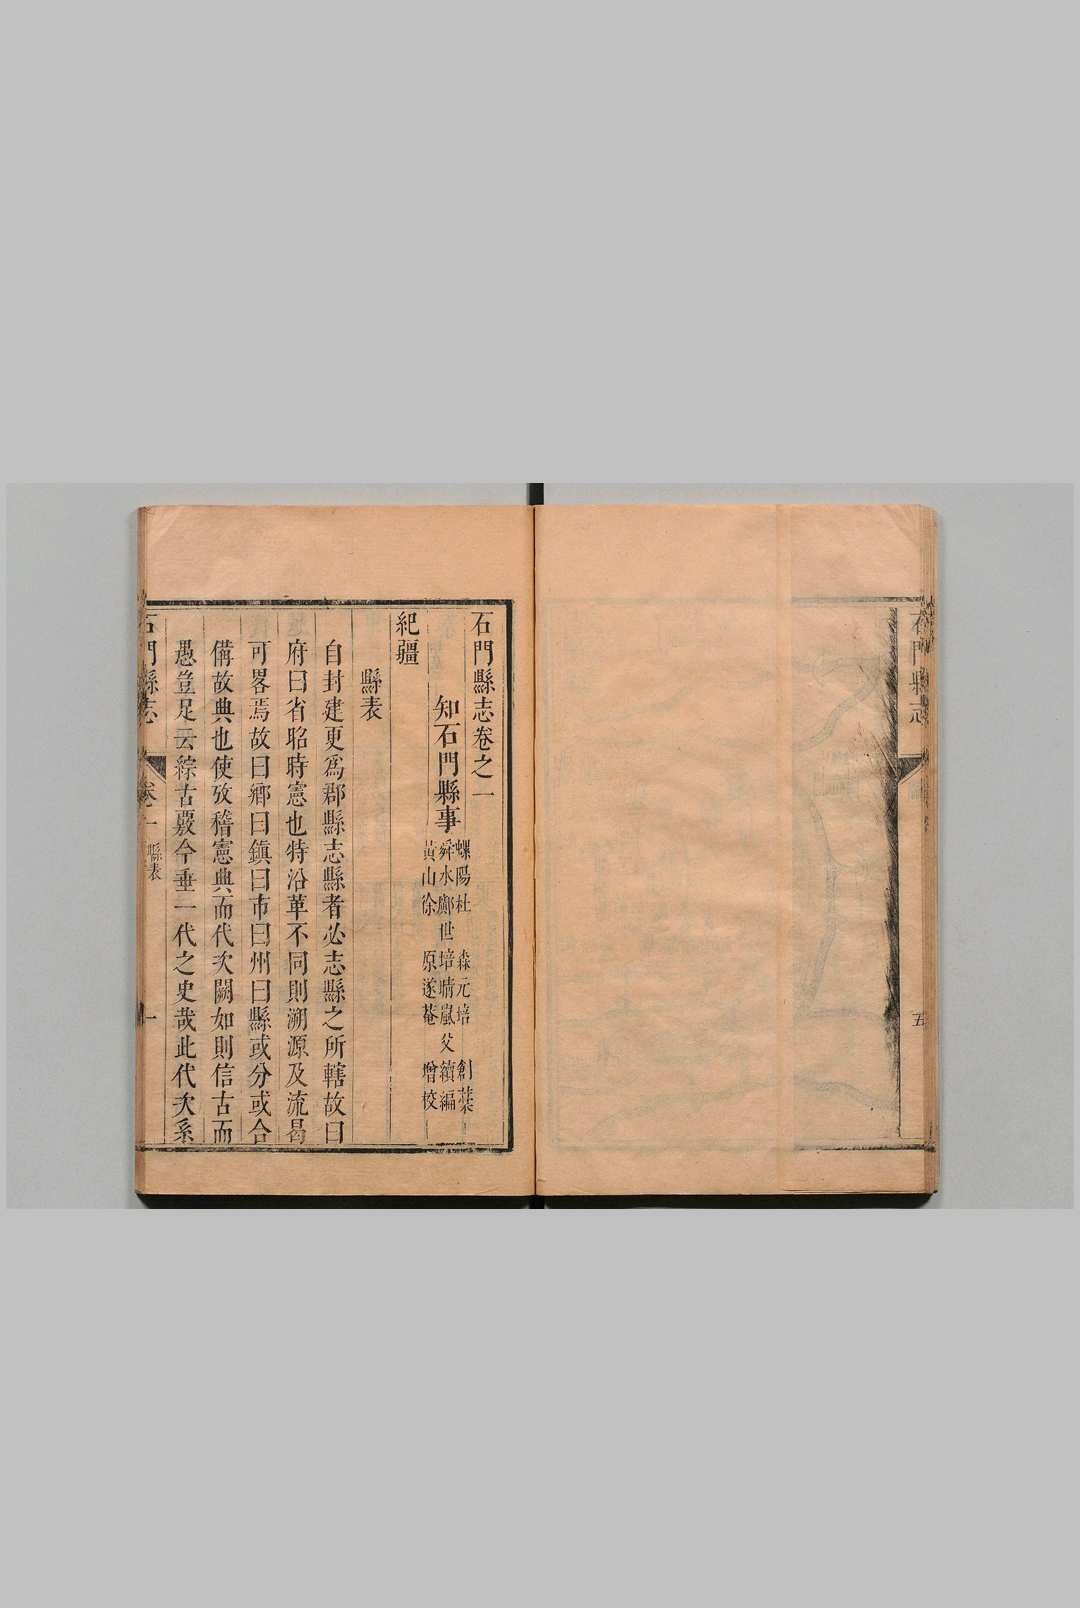 石門縣志
五
石門縣志卷之一
知石門縣事
螺陽杜森元培創藁
舜水鄺世培晴嵐父續編
黃山徐原遂菴增校
紀疆
縣表
自封建更爲郡縣志縣者必志縣之所轄故曰
府曰省昭時憲也特沿革不同則溯源及流曷
可畧焉故曰鄉曰鎮曰市曰州曰縣或分或合
備故典也使攷稽憲典而代次闕如則信古而
愚豈足云綜古覈今垂一代之史哉此代次系
石門縣志
卷之一
縣表
一